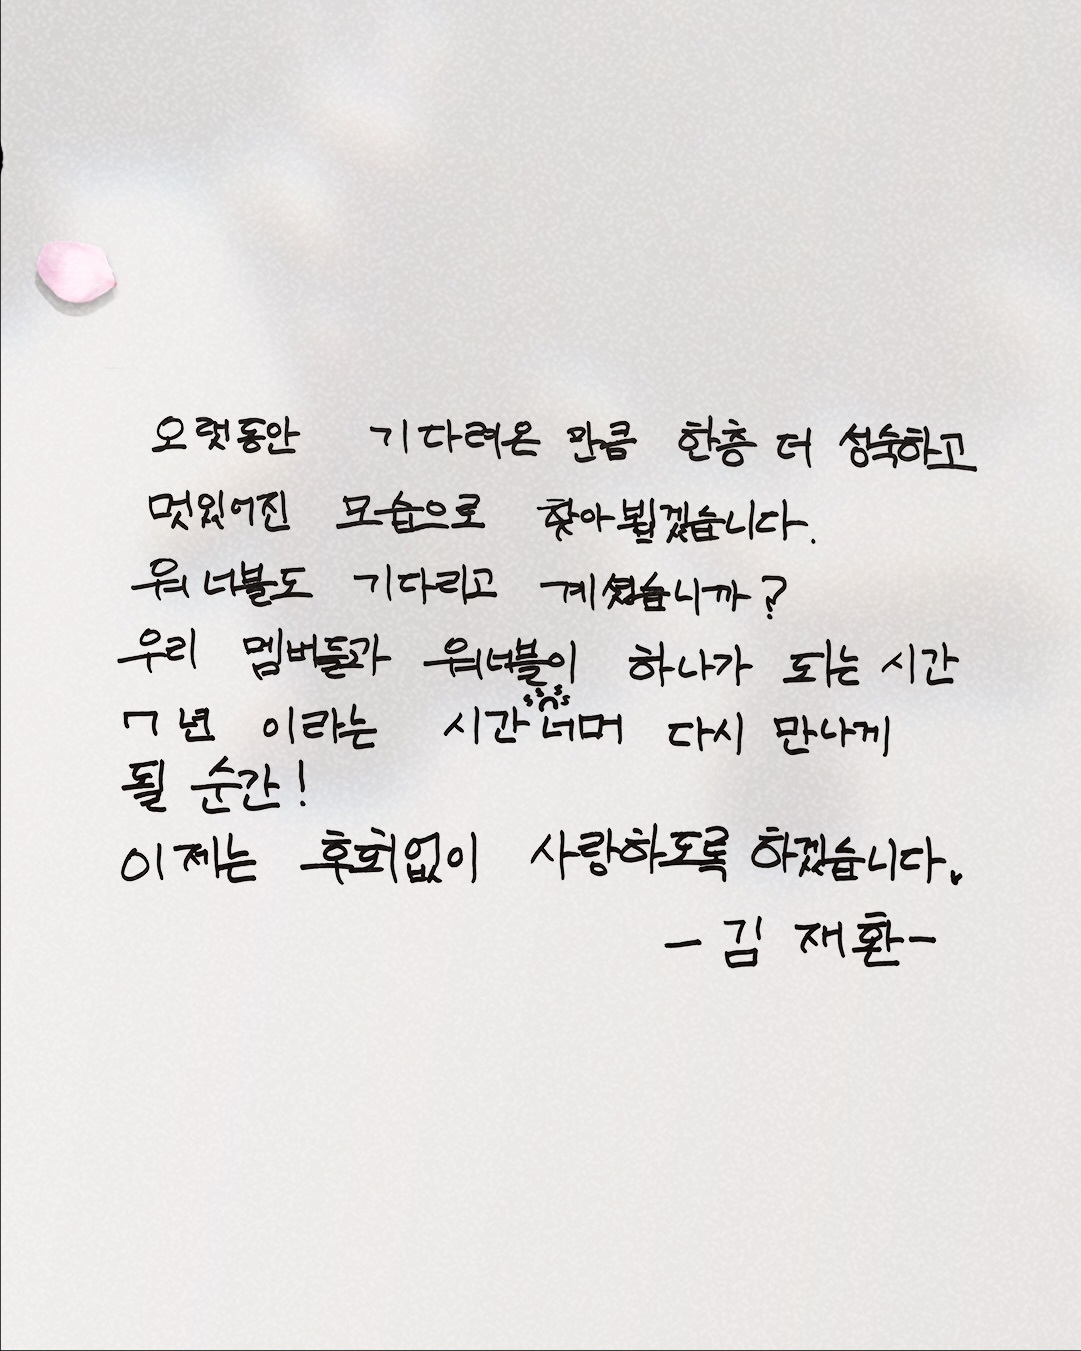 오랫동안 기다려온 만큼 한층 더 성숙하고
멋있어진 모습으로 찾아뵙겠습니다.
워너블도 기다리고 계셨습니까?
우리 멤버들과 워너블이 하나가 되는 시간
7년 이라는 시간 너머 다시 만나게
될 순간!
이제는 후회없이 사랑하도록 하겠습니다.
- 김재환-